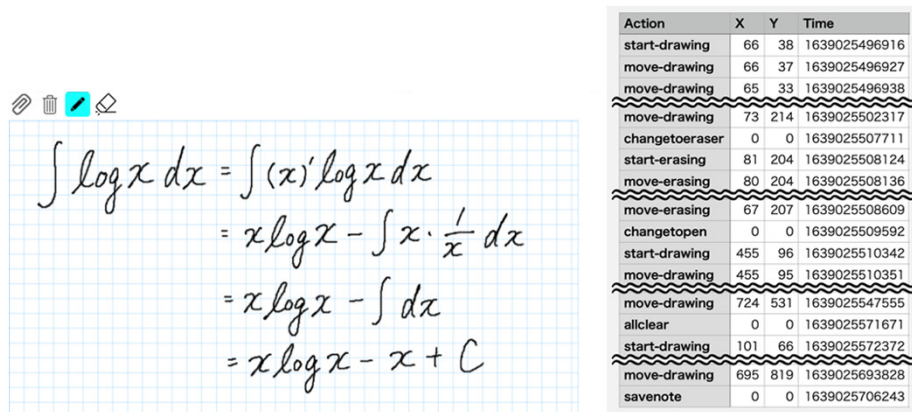 ∫ log x dx = ∫ (x)' log x dx
= x log x − ∫ x · 1/x dx
= x log x − ∫ dx
= x log x − x + C
Action X Y Time
start-drawing 66 38 1639025496916
move-drawing 66 37 1639025496927
move-drawing 65 33 1639025496938
move-drawing 73 214 1639025502317
changetoeraser 0 0 1639025507711
start-erasing 81 204 1639025508124
move-erasing 80 204 1639025508136
move-erasing 67 207 1639025508609
changetopen 0 0 1639025509592
start-drawing 455 96 1639025510342
move-drawing 455 95 1639025510351
move-drawing 724 531 1639025547555
allclear 0 0 1639025571671
start-drawing 101 66 1639025572372
move-drawing 695 819 1639025693828
savenote 0 0 1639025706243